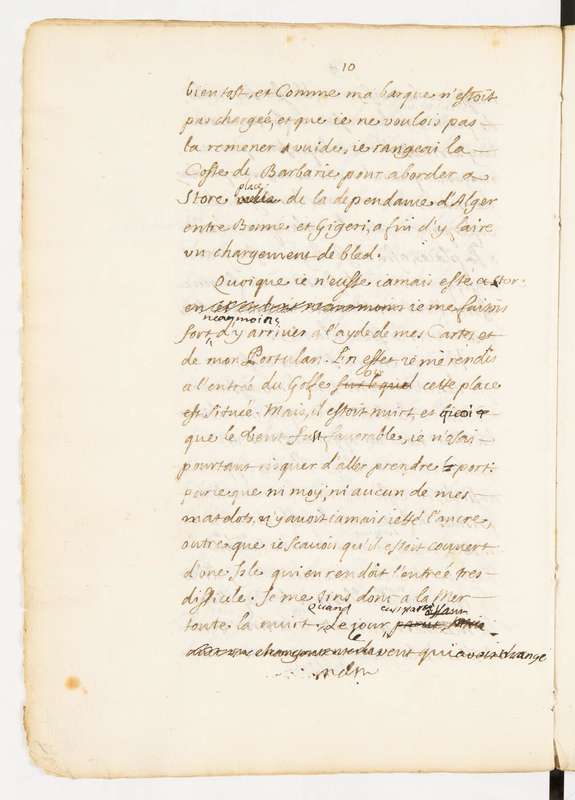 10
bientost, et Comme ma barque n'estoit
pas chargée, et que ie ne voulois pas
la remener a vuide, ie rangeai la
Coste de Barbarie pour aborder a
Store place de la dependame d'Alger
entre Bonne et Gigeri, afin d'y faire
vn chargement de bled.
Quoique ie n'eusse iamais esté a Stor.
en ie me faisois
neanmoins
fort d'y arriver a l'ayde de mes Cartes et
de mon Portulan. En effet ie me rendis
ou
a l'entrée du Golfe sur lequel cette place
est située. Mais, il estoit nuict, et quoi
que le Vent fust favorable, ie n'osai
pourtant risquer d'aller prendre le port.
parce que ni moy, ni aucun de mes
matelots, n'y avoit iamais ietté l'ancre,
outre que ie scavois qu'il estoit couvert
d'une Isle qui en rendoit l'entrée tres
difficile. Je me tins donc a la Mer
Quand
toute la nuict. Le jour parut,
le
changement de vent qui avoit changé